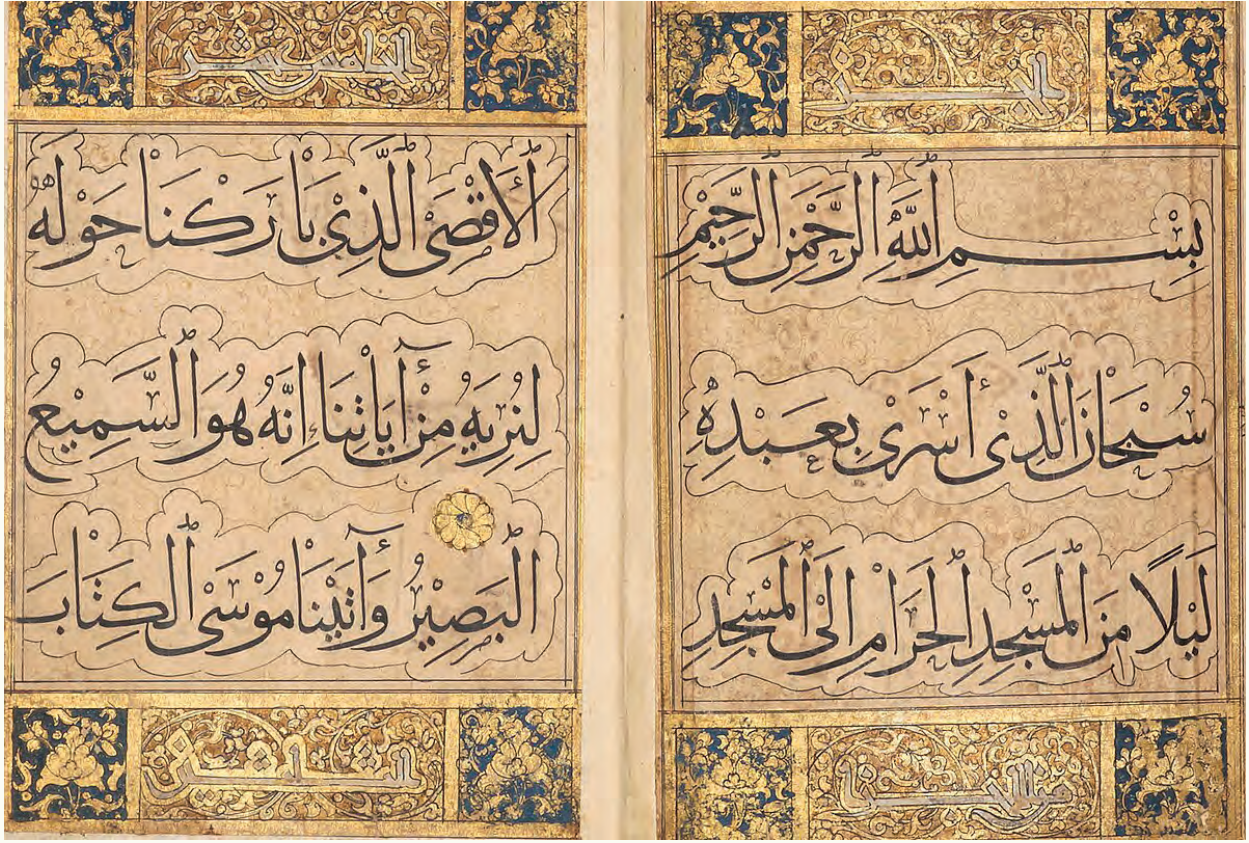 الجزء
بِسْمِ اللَّهِ الرَّحْمَنِ الرَّحِيمِ
سُبْحَانَ الَّذِىْ أَسْرَىْ بِعَبْدِهِ
لَيْلًا مِنَ الْمَسْجِدِ الْحَرَاْمِ اِلَىْ الْمَسْجِدِ
الخامس عشر
الْأَقْصَىْ الَّذِىْ بَاْرَكْنَاْ حَوْلَهُ
لِنُرِيَهُ مِنْ أٓيَاتِنَا إِنَّهُ هُوَ السَّمِيْعُ
الْبَصِيْرُ وَأٓتَيْنَاْ مُوْسَى الْكِتَابَ
الثلاثين